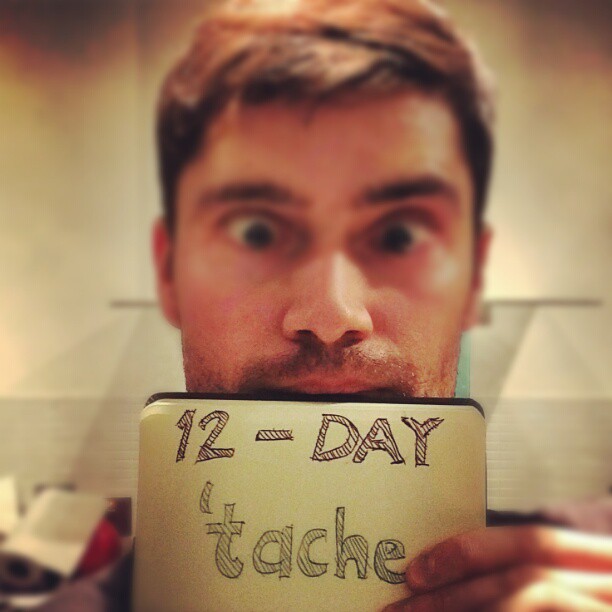 12-DAY
'tache